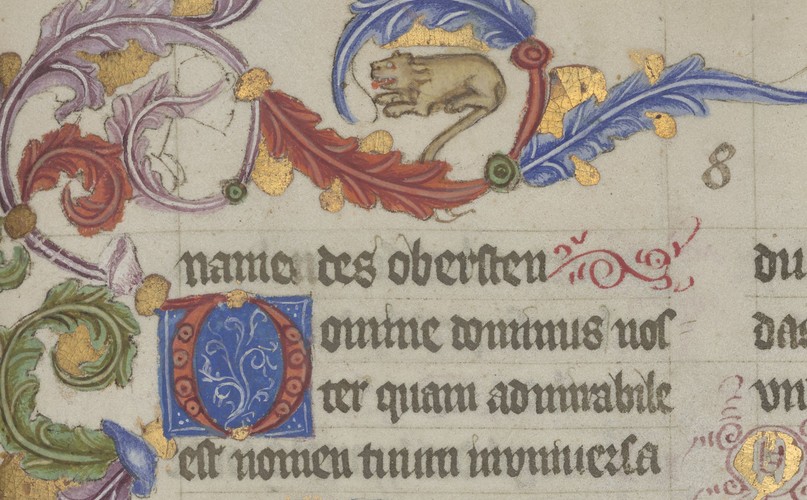 8
namen des obersten
Domine dominus nos
ter quam admirabile
est nomen tuum inuniuersa
du
das
vn